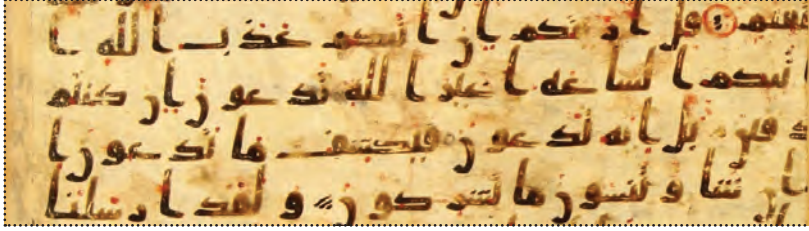 ستقيم قل ارءيتكم ان اتيكم عذب الله ا
اتتكم الساعه اغير الله تدعون ان كنتم
دقين بل اياه تدعون فيكشف ما تدعون ا
ان شا وتنسون ما تشركون ولقد ارسلنا